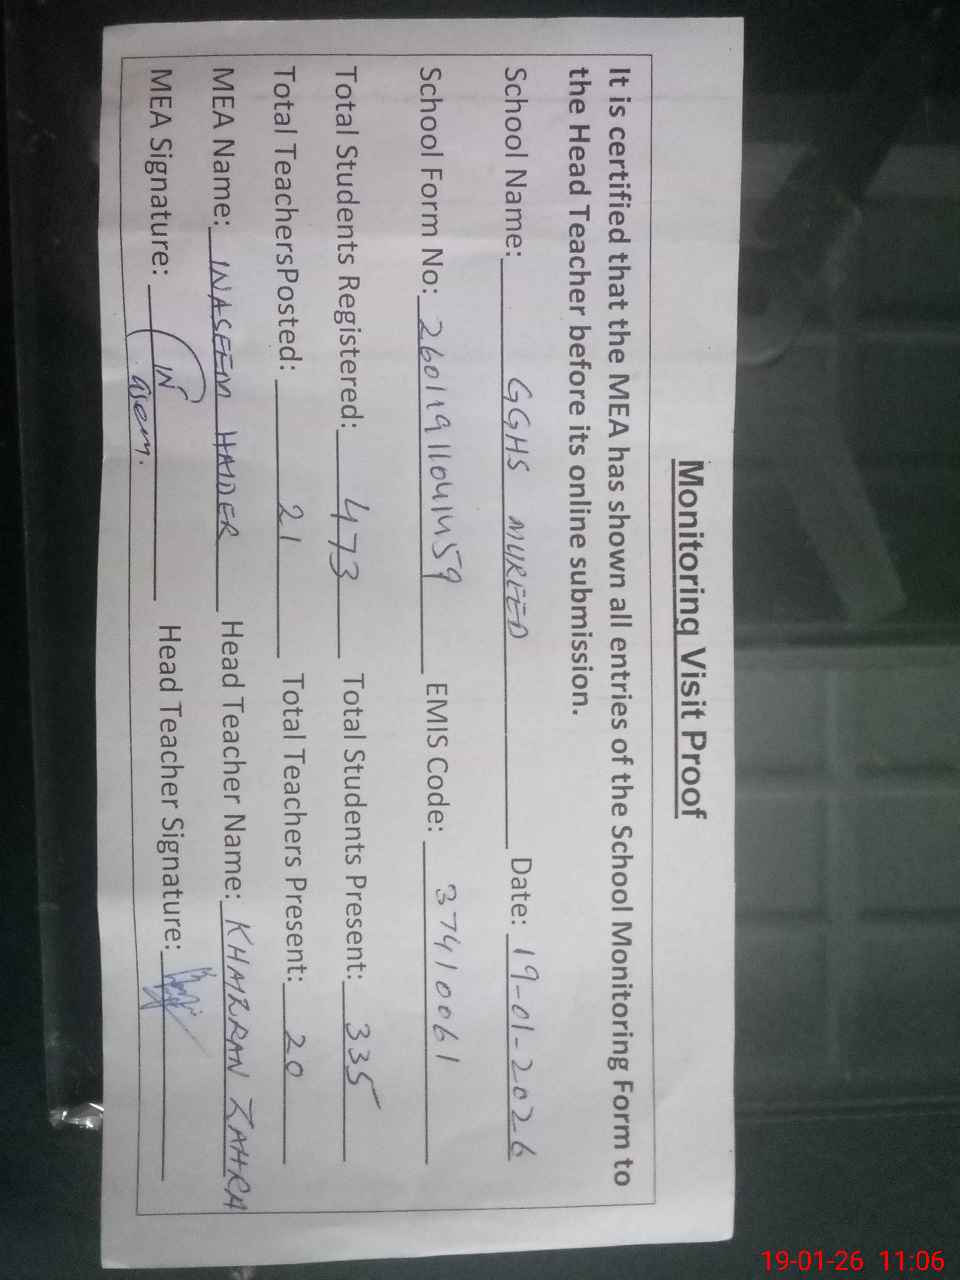 Monitoring Visit Proof
It is certified that the MEA has shown all entries of the School Monitoring Form to
the Head Teacher before its online submission.
School Name: GGHS MUREED Date: 19-01-2026
School Form No: 26011911041459 EMIS Code: 37410061
Total Students Registered: 473 Total Students Present: 335
Total TeachersPosted: 21 Total Teachers Present: 20
MEA Name: INASEEM HAIDER Head Teacher Name: KHAZRAN ZAHRA
MEA Signature: Head Teacher Signature:
19-01-26 11:06